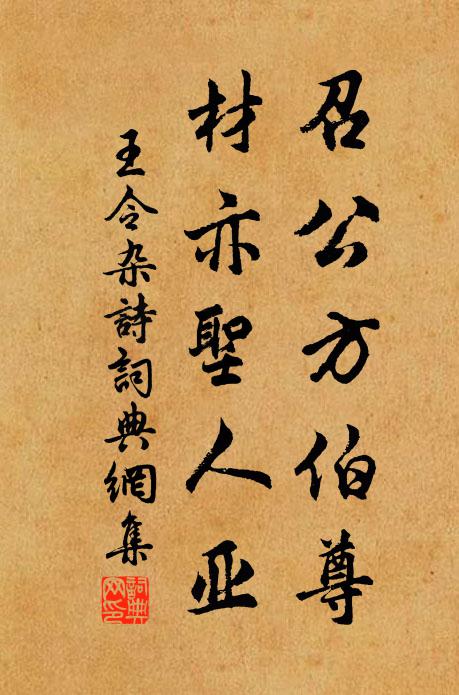 召公方伯尊
材亦聖人亚
王令杂詩詞典網集
詞典
网印